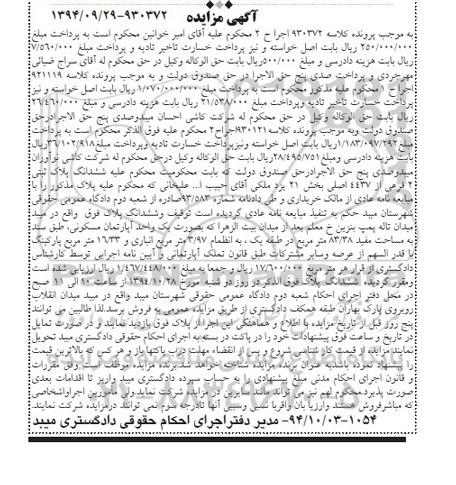 آگهی مزایده
۹۳۰۳۷۲-۱۳۹۴/۰۹/۲۹
به موجب پرونده کلاسه ۹۳۰۳۷۲ اجرا ح ۲ محکوم علیه آقای امیر خوانین محکوم است به پرداخت مبلغ
۲۵۰/۰۰۰/۰۰۰ ریال بابت اصل خواسته و نیز پرداخت خسارت تاخیر تادیه و پرداخت مبلغ ۷/۵۶۰/۰۰۰
ریال بابت هزینه دادرسی و مبلغ ۵۰۰/۰۰۰ریال بابت حق الوکاله وکیل در حق محکوم له آقای سراج ضیائی
مهرجردی و پرداخت صدی پنج حق الاجرا در حق صندوق دولت و به موجب پرونده کلاسه ۹۲۱۱۱۹
اجراح ۲ محکوم علیه مذکور محکوم است به پرداخت مبلغ ۱/۰۷۰/۰۰۰/۰۰۰ ریال بابت اصل خواسته و نیز
پرداخت خسارت تاخیر تادیه وپرداخت مبلغ ۲۱/۵۳۸/۰۰۰ ریال بابت هزینه دادرسی و مبلغ ۲۶/۴۶۰/۰۰۰
ریال بابت حق الوکاله وکیل در حق محکوم له شرکت کاشی احسان میبدوصدی پنج حق الاجرادرحق
صندوق دولت وبه موجب پرونده کلاسه ۹۳۰۱۲۱اجراح۲ محکوم علیه فوق الذکر محکوم است به پرداخت
مبلغ ۱/۱۸۳/۰۹۷/۲۹۲ریال بابت اصل خواسته ونیزپرداخت خسارت تادیه وپرداخت مبلغ۳۶/۱۰۲/۹۱۸ریال
بابت هزینه دادرسی ومبلغ ۲۸/۴۹۵/۷۵۱ریال بابت حق الوکاله وکیل درحق محکوم له شرکت کاشی نوآوران
میبدوصدی پنج حق الاجرادرحق صندوق دولت که بابت محکومیت محکوم علیه ششدانگ پلاک ثبتی
۲ فرعی از ۴۴۳۷ اصلی بخش ۲۱ یزد ملکی آقای حبیب ا... علیخانی که محکوم علیه پلاک مذکور را با
مبایعه نامه عادی از مالک خریداری و طی دادنامه شماره ۹۳/۵۸۳صادره از شعبه دوم دادگاه عمومی حقوقی
شهرستان میبد حکم به تنفیذ مبایعه نامه عادی گردیده است توقیف وششدانگ پلاک فوق واقع در میبد
میدان تاله پمپ بنزین خ معلم بعد از میدان بیت الزهرا که بصورت یک واحد آپارتمان مسکونی، طبق سند
به مساحت مفید ۸۳/۳۸ متر مربع در طبقه یک ، به انظمام ۳/۹۷ متر مربع انباری و ۱۶/۳۳ متر مربع پارکینگ
با قدر السهم از عرصه وسایر مشترکات طبق قانون تملک آپارتمانی و آیین نامه اجرایی توسط کارشناس
دادگستری از قرار هر متر مربع ۱۷/۶۰۰/۰۰۰ ریال و جمعا به مبلغ ۱/۴۶۷/۴۴۸/۰۰۰ ریال ارزیابی شده است
ومقررگردیده ششدانگ پلاک فوق الذکر در روز دو شنبه مورخ ۱۳۹۴/۱۰/۲۸ از ساعت ۱۰ الی ۱۱ صبح
در محل دفتر اجرای احکام شعبه دوم دادگاه عمومی حقوقی شهرستان میبد واقع در میبد میدان انقلاب
روبروی پارک بهاران طبقه همکف دادگستری از طریق مزایده عمومی به فروش برسد.لذا طالبین می توانند
پنج روز قبل از تاریخ مزایده با اطلاع و هماهنگی این اجرا از پلاک فوق بازدید نمایند و در صورت تمایل
در تاریخ و ساعت فوق پیشنهادات خود را در پاکت در بسته به اجرای احکام حقوقی دادگستری میبد تحویل
نمایند مزایده از قیمت کارشناسی شروع و پس از انقضاء مهلت درب پاکتها باز و هر کس که بالاترین قیمت
را پیشنهاد نموده باشدبه عنوان برنده مزایده شناخته خواهد شد.برنده مزایده موظف است وفق مقررات
و قانون اجرای احکام مدنی مبلغ پیشنهادی را به حساب سپرده دادگستری میبد واریز تا اقدامات بعدی
صورت پذیرد.محکوم لهم نیز می تواند مانند سایرین در مزایده شرکت نماید.ولی مامورین اجراواشخاصی
که مباشرفروش هستند وارزیا بان واقربا نسبی وسببی آنها تادرجه سوم نمی توانند درمزایده شرکت نمایند.
۹۴/۱۰/۰۳-۱۰۵۴- مدیر دفتراجرای احکام حقوقی دادگستری میبد